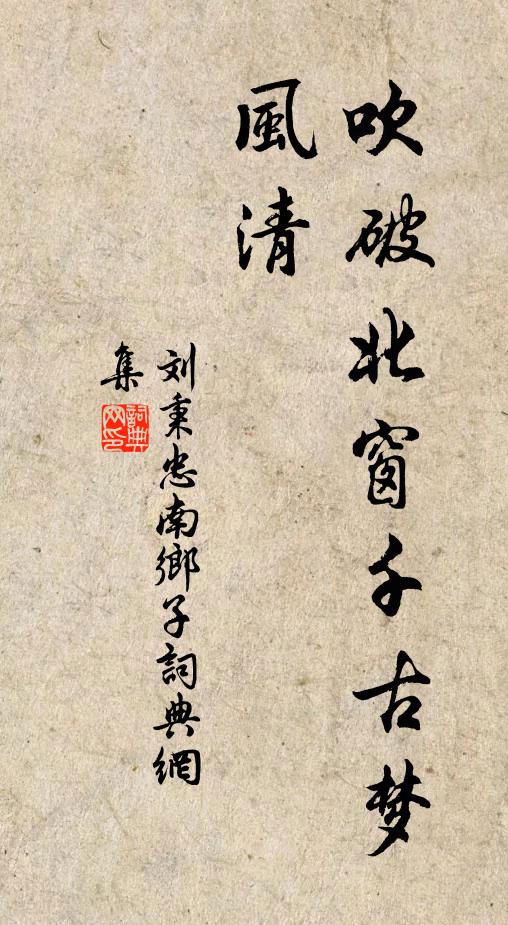 吹破北窗千古梦
風清
刘秉忠南鄉子詞典網
集
詞典網印